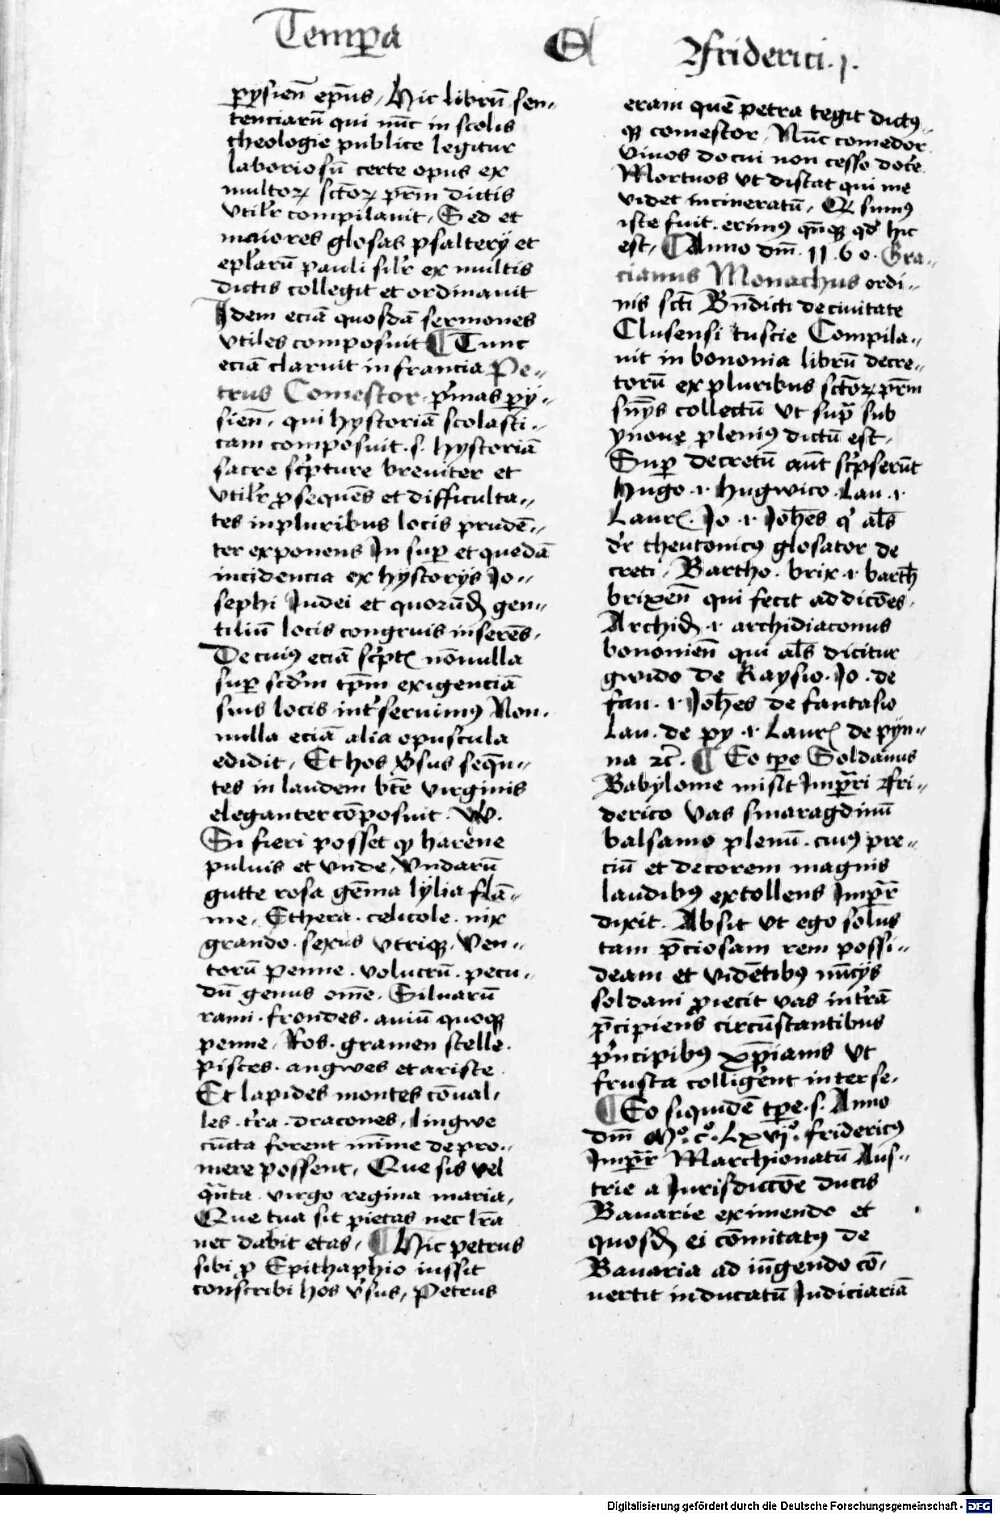 Temp̲a Friderici .I.
p̲ysien̄ ep̄us, Hic librū sen-
tenciarū qui nūc in scolis
theologie publice legitur
laboriosū certe opus ex
multoꝝ sctōꝝ pr̄m dictis
vtilr̄ compilauit, Sed et
maiores glosas psalterÿ et
epl̄arū pauli silr̄ ex multis
dictis collegit et ordinauit
Idem eciā quosdā sermones
vtiles composuit ¶ Tunc
eciā claruit in francia Pe-
trus Comestor p̄mas p̲ÿ-
sien̄, qui hystoriā scolasti-
cam composuit .s. hystoriā
sacre sc̄pture breuiter et
vtilr̄ ꝓsequēs et difficulta-
tes in pluribus locis prudē-
ter exponens In sup̲ et quedā
incidencia ex hystorÿs Jo-
sephi Judei et quorūd̄ gen-
tiliū locis congruis inserēs,
De cuiꝰ eciā sc̄ptꝭ nōnulla
sup̲ scd̄m tp̄m exigenciā
suis locis int̄seruimꝰ Non-
nulla eciā alia opuscula
edidit, Et hos v̄sus seq̄n-
tes in laudem btē virginis
eleganter cōposuit. W.
Si fieri posset ꝙ harene
puluis et vnde, vndarū
gutte rosa gēma lylia flā-
me, Ethera. celicole. nix
grando. sexus vtriqꝫ, ven-
torū penne. volucrū. pecu-
dū genus om̄e, Siluarū
rami. frondes. auiū quoqꝫ
penne, Ros. gramen stelle.
pisces. angwes et ariste
Et lapides montes cōual-
les. t̄ra. dracones, lingwe
cūcta forent mīme depro-
mere possent, Que sis vel
qn̄ta virgo regina maria,
Que tua sit pietas nec lr̄a
nec dabit etas, ¶ Hic petrus
sibi ꝓ Epithaphio iussit
conscribi hos v̄sus, Petrus
eram quē petra tegit dictꝰ-
qꝫ comestor, Nūc comedor
viuos docui non cesso docē
Mortuos vt dicat qui me
videt incineratū, Qd sumꝰ
iste fuit. erimꝰ qn̄qꝫ qd̄ hic
est, ¶ Anno dm̄. 1160. Gra-
cianus Monachus ordi-
nis sctī Bn̄dicti de ciuitate
Clusensi tuscie Compila-
uit in bononia librū decre-
torū ex pluribus sctōꝝ pr̄m
sn̄ÿs collectū vt sup̄ sub
ynone pleniꝰ dictū est,
Sup̲ decretū aūt sc̄pserūt
Hugo .i. hugwico. Lau .i.
Laurꝭ. Jo .i. Joh̄es q̄ al̄s
dr̄ theutonicꝰ glosator de
creti, Bartho. brix .i. barth̄
brixen̄ qui fecit addicōes,
Archid̄ .i. archidiaconus
bononien̄ qui al̄s dicitur
gwido de Raysio. Jo. de
fan .i. Joh̄es de fantasio
Lau. de py .i. Laurꝭ de pÿn-
na ꝛc̄. ¶ Eo tp̲e Soldanus
Babylonie misit Imp̲r̄i Fri-
derico vas smaragdinū
balsamo plenū. cuiꝰ pre-
ciū et decorem magnis
laudibꝰ extollens Imp̲r̄
dixit. Absit vt ego solus
tam p̄ciosam rem possi-
deam et vidētibꝰ nūcÿs
soldani ꝓiecit vas int̄rā
p̄cipiens circūstantibus
p̄ncipibꝰ xp̄ianis vt
frusta colliger̄ent inter se,
¶ Eo siquidē tp̲e .s. Anno
dm̄ Mº.cº.Lxvjº. fridericꝰ
Imp̲r̄ Marchionatū Aus-
trie a Jurisdictōe ducis
Bauarie eximendo et
quosd̄ ei cōmitatꝰ de
Bauaria ad iūgendo cō-
uertit in ducatū Judiciariā
Digitalisierung gefördert durch die Deutsche Forschungsgemeinschaft - DFG